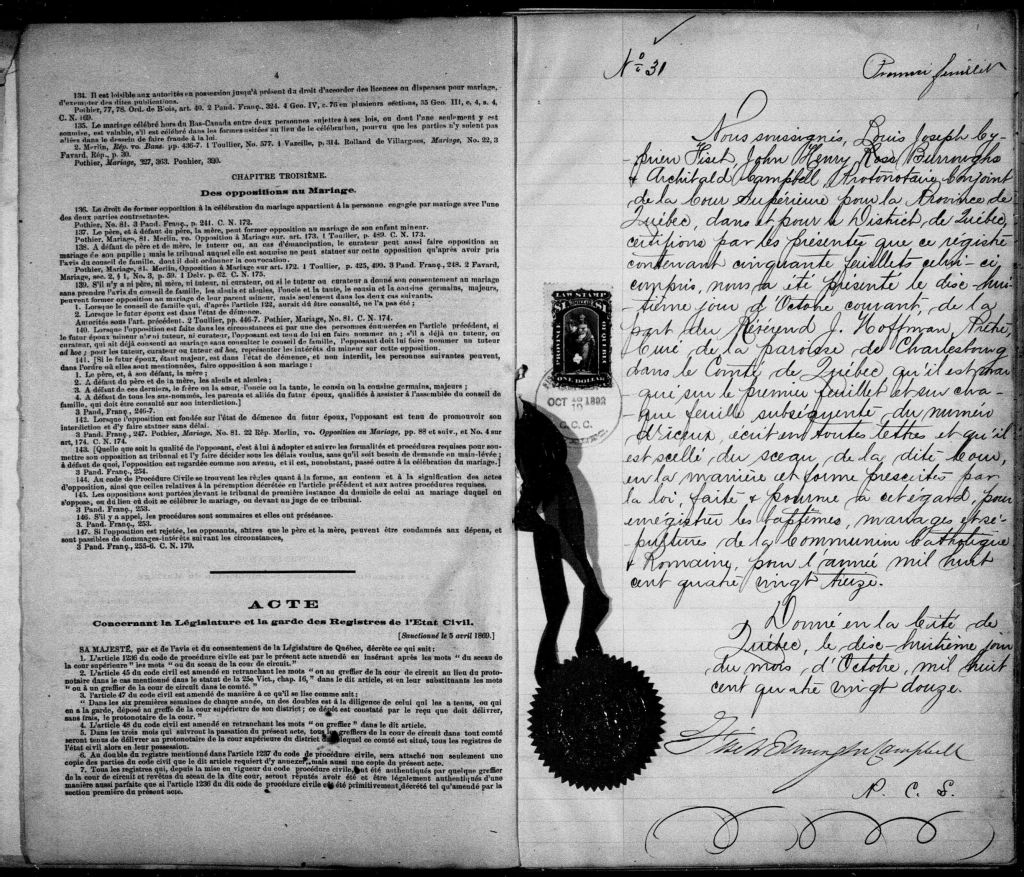 4
134. Il est loisible aux autorités en possession jusqu'à présent du droit d'accorder des licences ou dispenses pour mariage,
d'exempter des dites publications.
Pothier, 77, 78. Ord. de Blois, art. 40. 2 Pand. Franç., 324. 4 Geo. IV, c. 76 en plusieurs sections, 35 Geo. III, c, 4, s. 4,
C. N. 169.
135. Le mariage célébré hors du Bas-Canada entre deux personnes sujettes à ses lois, ou dont l'une seulement y est
soumise, est valable, s'il est célébré dans les formes usitées au lieu de la célébration, pourvu que les parties n'y soient pas
allées dans le dessein de faire fraude à la loi.
2. Merlin, Rép. vo. Bans. pp. 436-7. 1 Toullier, No. 577. 1 Vazeille, p. 314. Rolland de Villargues, Mariage, No. 22, 3
Favard, Rép., p. 30.
Pothier, Mariage, 227, 363. Pothier, 320.
CHAPITRE TROISIÈME.
Des oppositions au Mariage.
136. Le droit de former opposition à la célébration du mariage appartient à la personne engagée par mariage avec l'une
des deux parties contractantes.
Pothier, No. 81. 3 Pand. Franç., p. 241. C. N. 172.
137. Le père, et à défaut du père, la mère, peut former opposition au mariage de son enfant mineur.
Pothier, Mariage, 81. Merlin, vo. Opposition à Mariage sur. art. 173. 1 Toullier, p. 489. C. N. 173.
138. A défaut de père et de mère, le tuteur ou, au cas d'émancipation, le curateur peut aussi faire opposition au
mariage de son pupille; mais le tribunal auquel elle est soumise ne peut statuer sur cette opposition qu'après avoir pris
l'avis du conseil de famille, dont il doit ordonner la convocation.
Pothier, Mariage, 81. Merlin, Opposition à Mariage sur art. 172. 1 Toullier, p. 425, 490. 3 Pand. Franç., 248. 2 Favard,
Mariage, sec. 2, § 1, No. 3, p. 59. 1 Delv. p. 62. C. N. 175.
139. S'il n'y a ni père, ni mère, ni tuteur, ni curateur, ou si le tuteur ou curateur a donné son consentement au mariage
sans prendre l'avis du conseil de famille, les aïeuls et aïeules, l'oncle et la tante, le cousin et la cousine germains, majeurs,
peuvent former opposition au mariage de leur parent mineur, mais seulement dans les deux cas suivants.
1. Lorsque le conseil de famille qui, d'après l'article 122, aurait dû être consulté, ne l'a pas été;
2. Lorsque le futur époux est dans l'état de démence.
Autorités sous l'art. précédent. 2 Toullier, pp. 446-7. Pothier, Mariage, No. 81. C. N. 174.
140. Lorsque l'opposition est faite dans les circonstances et par une des personnes énoncées en l'article précédent, si
le futur époux mineur n'a ni tuteur, ni curateur, l'opposant est tenu de lui en faire nommer un; s'il a déjà un tuteur, ou
curateur, qui ait déjà consenti au mariage sans consulter le conseil de famille, l'opposant doit lui faire nommer un tuteur
ad hoc; pour les tuteur, curateur ou tuteur ad hoc, représenter les intérêts du mineur sur cette opposition.
141. [Si le futur époux, étant majeur, est dans l'état de démence, et non interdit, les personnes suivantes peuvent,
dans l'ordre où elles sont mentionnées, faire opposition à son mariage:
1. Le père, et, à son défaut, la mère;
2. A défaut du père et de la mère, les aïeuls et aïeules;
3. A défaut de ces derniers, le frère ou la sœur, l'oncle ou la tante, le cousin ou la cousine germains, majeurs;
4. A défaut de tous les sus-nommés, les parents et alliés du futur époux, qualifiés à assister à l'assemblée du conseil de
famille, qui doit être consulté sur son interdiction.]
3 Pand. Franç., 246-7.
142. Lorsque l'opposition est fondée sur l'état de démence du futur époux, l'opposant est tenu de promouvoir son
interdiction et d'y faire statuer sans délai.
3 Pand. Franç., 247. Pothier, Mariage, No. 81. 22 Rép. Merlin, vo. Opposition au Mariage, pp. 88 et suiv., et No. 4 sur
art, 174. C. N. 174.
143. [Quelle que soit la qualité de l'opposant, c'est à lui à adopter et suivre les formalités et procédures requises pour sou-
mettre son opposition au tribunal et l'y faire décider sous les délais voulus, sans qu'il soit besoin de demande en main-levée;
à défaut de quoi, l'opposition est regardée comme non avenue, et il est, nonobstant, passé outre à la célébration du mariage.]
3 Pand. Franç., 254.
144. Au code de Procédure Civile se trouvent les règles quant à la forme, au contenu et à la signification des actes
d'opposition, ainsi que celles relatives à la péremption décrétée en l'article précédent et aux autres procédures requises.
145. Les oppositions sont portées devant le tribunal de première instance du domicile de celui au mariage duquel on
s'oppose, ou du lieu où doit se célébrer le mariage, ou devant un juge de ce tribunal.
3 Pand. Franç., 253.
146. S'il y a appel, les procédures sont sommaires et elles ont préséance.
3. Pand. Franç., 253.
147. Si l'opposition est rejetée, les opposants, autres que le père et la mère, peuvent être condamnés aux dépens, et
sont passibles de dommages-intérêts suivant les circonstances,
3 Pand. Franç., 255-6. C. N. 179.
ACTE
Concernant la Législature et la garde des Registres de l'Etat Civil.
[Sanctionné le 5 avril 1869.]
SA MAJESTÉ, par et de l'avis et du consentement de la Législature de Québec, décrète ce qui suit:
1. L'article 1236 du code de procédure civile est par le présent acte amendé en insérant après les mots "du sceau de
la cour supérieure" les mots "ou du sceau de la cour de circuit."
2. L'article 45 du code civil est amendé en retranchant les mots "ou au greffier de la cour de circuit au lieu du proto-
notaire dans le cas mentionné dans le statut de la 25e Vict., chap. 16," dans le dit article, et en leur substituant les mots
"ou à un greffier de la cour de circuit dans le comté."
3. l'article 47 du code civil est amendé de manière à ce qu'il se lise comme suit;
"Dans les six premières semaines de chaque année, un des doubles est à la diligence de celui qui les a tenus, ou qui
en a la garde, déposé au greffe de la cour supérieure de son district; ce dépôt est constaté par le reçu que doit délivrer,
sans frais, le protonotaire de la cour."
4. L'article 48 du code civil est amendé en retranchant les mots "on greffier" dans le dit article.
5. Dans les trois mois qui suivront la passation du présent acte, tous les greffiers de la cour de circuit dans tout comté
seront tenus de délivrer au protonotaire de la cour supérieure du district dans lequel ce comté est situé, tous les registres de
l'état civil alors en leur possession.
6. Au double du registre mentionné dans l'article 1237 du code de procédure civile, sera attaché non seulement une
copie des parties du code civil que le dit article requiert d'y annexer, mais aussi une copie du présent acte.
7. Tous les registres qui, depuis la mise en vigueur du code procédure civile, ont été authentiqués par quelque greffier
de la cour de circuit et revêtus du sceau de la dite cour, seront réputés avoir été et être légalement authentiqués d'une
manière aussi parfaite que si l'article 1236 du dit code de procédure civile eut été primitivement décrété tel qu'amendé par la
section première du présent acte.
LAW STAMP
$1 $1
PROVINCE QUEBEC
ONE DOLLAR
OCT 1892
C.C.C.
No 31
Premier feuillet
Nous soussignés, Louis Joseph Cy-
-prien Fiset, John Henry Ross Burroughs
& Archibald Campbell, Protonotaire Conjoint
de la Cour Supérieure pour la Province de
Québec, dans et pour le District de Québec,
certifions par les présentes que ce régistre
contenant cinquante feuillets celui-ci
compris, nous a été présenté le dix-hui-
-tième jour d'Octobre courant, de la
part du Révérend J. Hoffman, Prêtre
Curé de la paroisse de Charlesbourg
dans le Comté de Québec qu'il est mar
qué sur le premier feuillet et sur cha-
-que feuille subséquente du numéro
d'iceux, écrit en toutes lettres et qu'il
est scellé du sceau de la dite Cour,
en la manière et forme prescrites par
la loi, faite & pourvue à cet égard, pour
enrégistrer les baptêmes, mariages et sé-
-pultures de la Communion Catholique
& Romaine, pour l'année mil huit
cent quatre vingt treize.
Donné en la Cité de
Québec, le dix-huitième jour
du mois d'Octobre, mil huit
cent quatre vingt douze.
Fiset Burroughs Campbell
P. C. S.